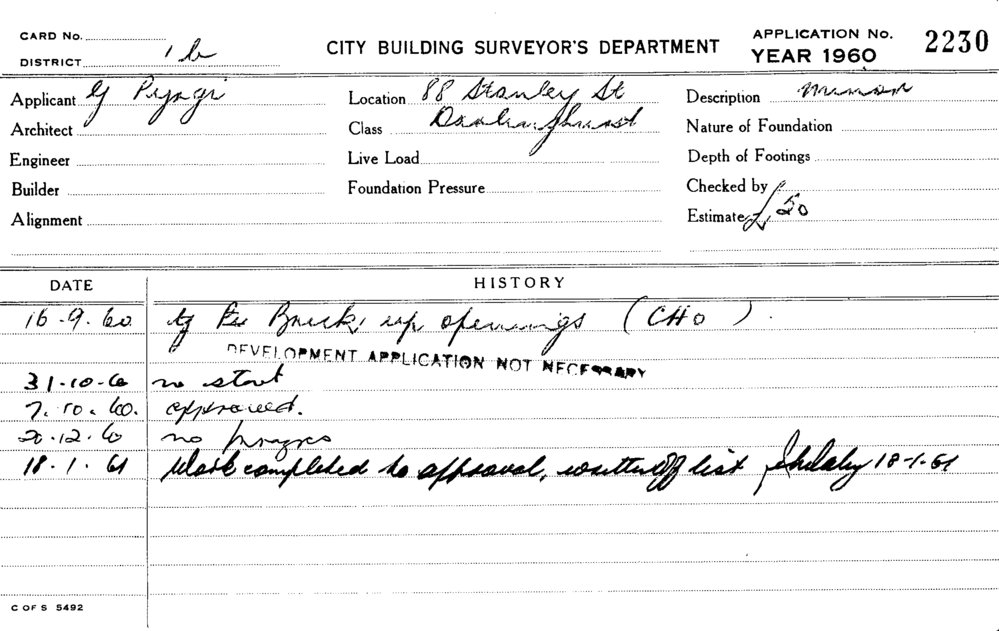 CARD No.
DISTRICT 1b
CITY BUILDING SURVEYOR'S DEPARTMENT
APPLICATION No. 2230
YEAR 1960
Applicant G
Architect
Engineer
Builder
Alignment
Location 88 Stanley St
Class Darlinghurst
Live Load
Foundation Pressure
Description
Nature of Foundation
Depth of Footings
Checked by
Estimate £50
DATE HISTORY
16.9.60 Brick up openings (CHO).
DEVELOPMENT APPLICATION NOT NECESSARY
31-10-60 no start
7.10.60. approved.
20.12.60 no progress
18.1.61 Work completed to approval, written off list 18-1-61
C OF S 5492